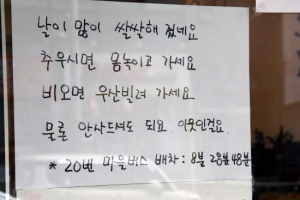 날이 많이 쌀쌀해 졌네요
추우시면 몸녹이고 가세요
비오면 우산빌려 가세요
물론 안사드셔도 되요 이웃인걸요.
* 20번 마을버스 배차: 8분 28분 48분